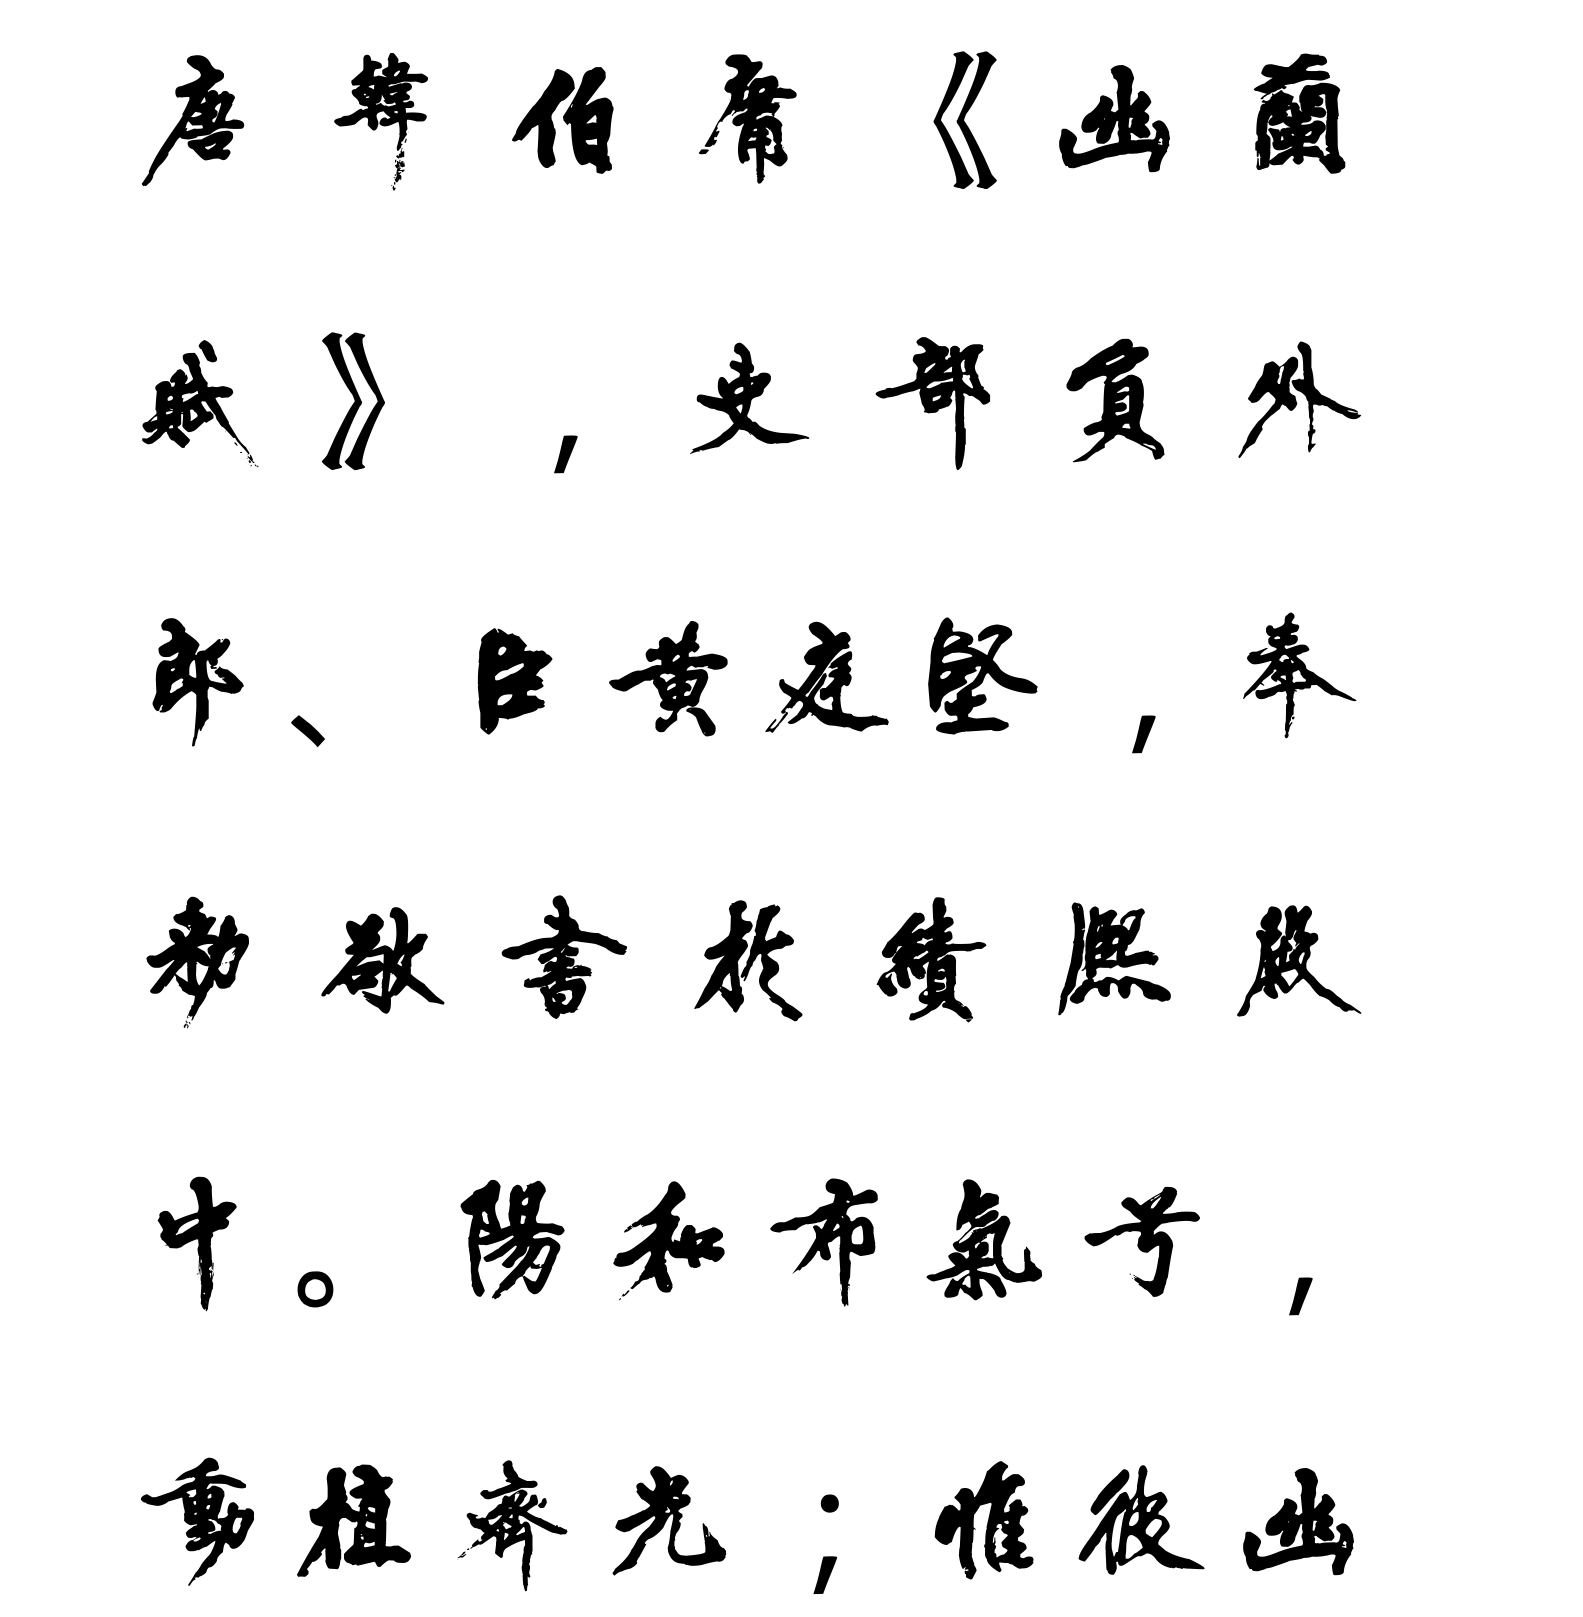 唐韓伯庸《幽蘭
賦》,吏部員外
郎、臣黃庭堅,奉
勅敬書於績熙殿
中。陽和布氣兮,
動植齊光;惟彼幽